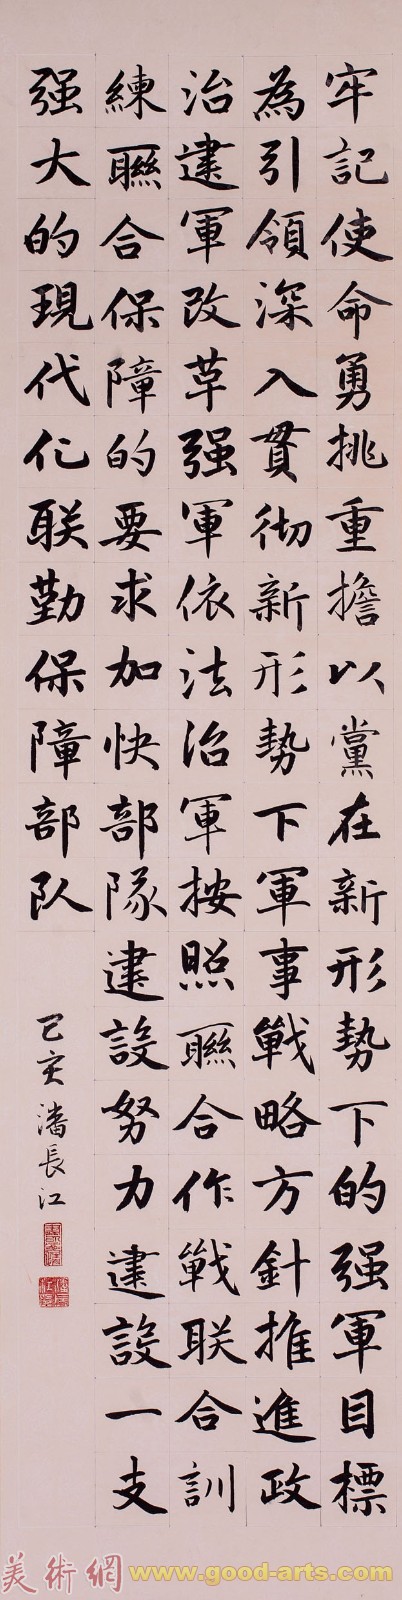 牢記使命勇挑重擔以黨在新形勢下的强軍目標
為引領深入貫彻新形勢下軍事戰略方針推進政
治建軍改革强軍依法治軍按照聯合作戰联合訓
練聯合保障的要求加快部隊建設努力建設一支
强大的現代化联勤保障部队
己亥潘長江
美術網 www.good-arts.com